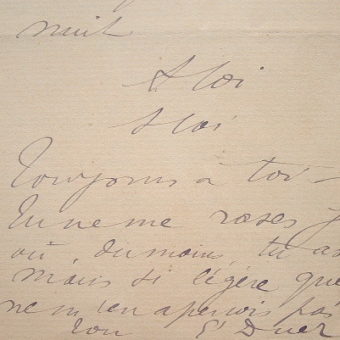 nuit
A toi
A toi
Toujours à toi -
Tu ne me roses
où, du moins, tu as
mais si légère que
ne m'en aperçois pas
Ton